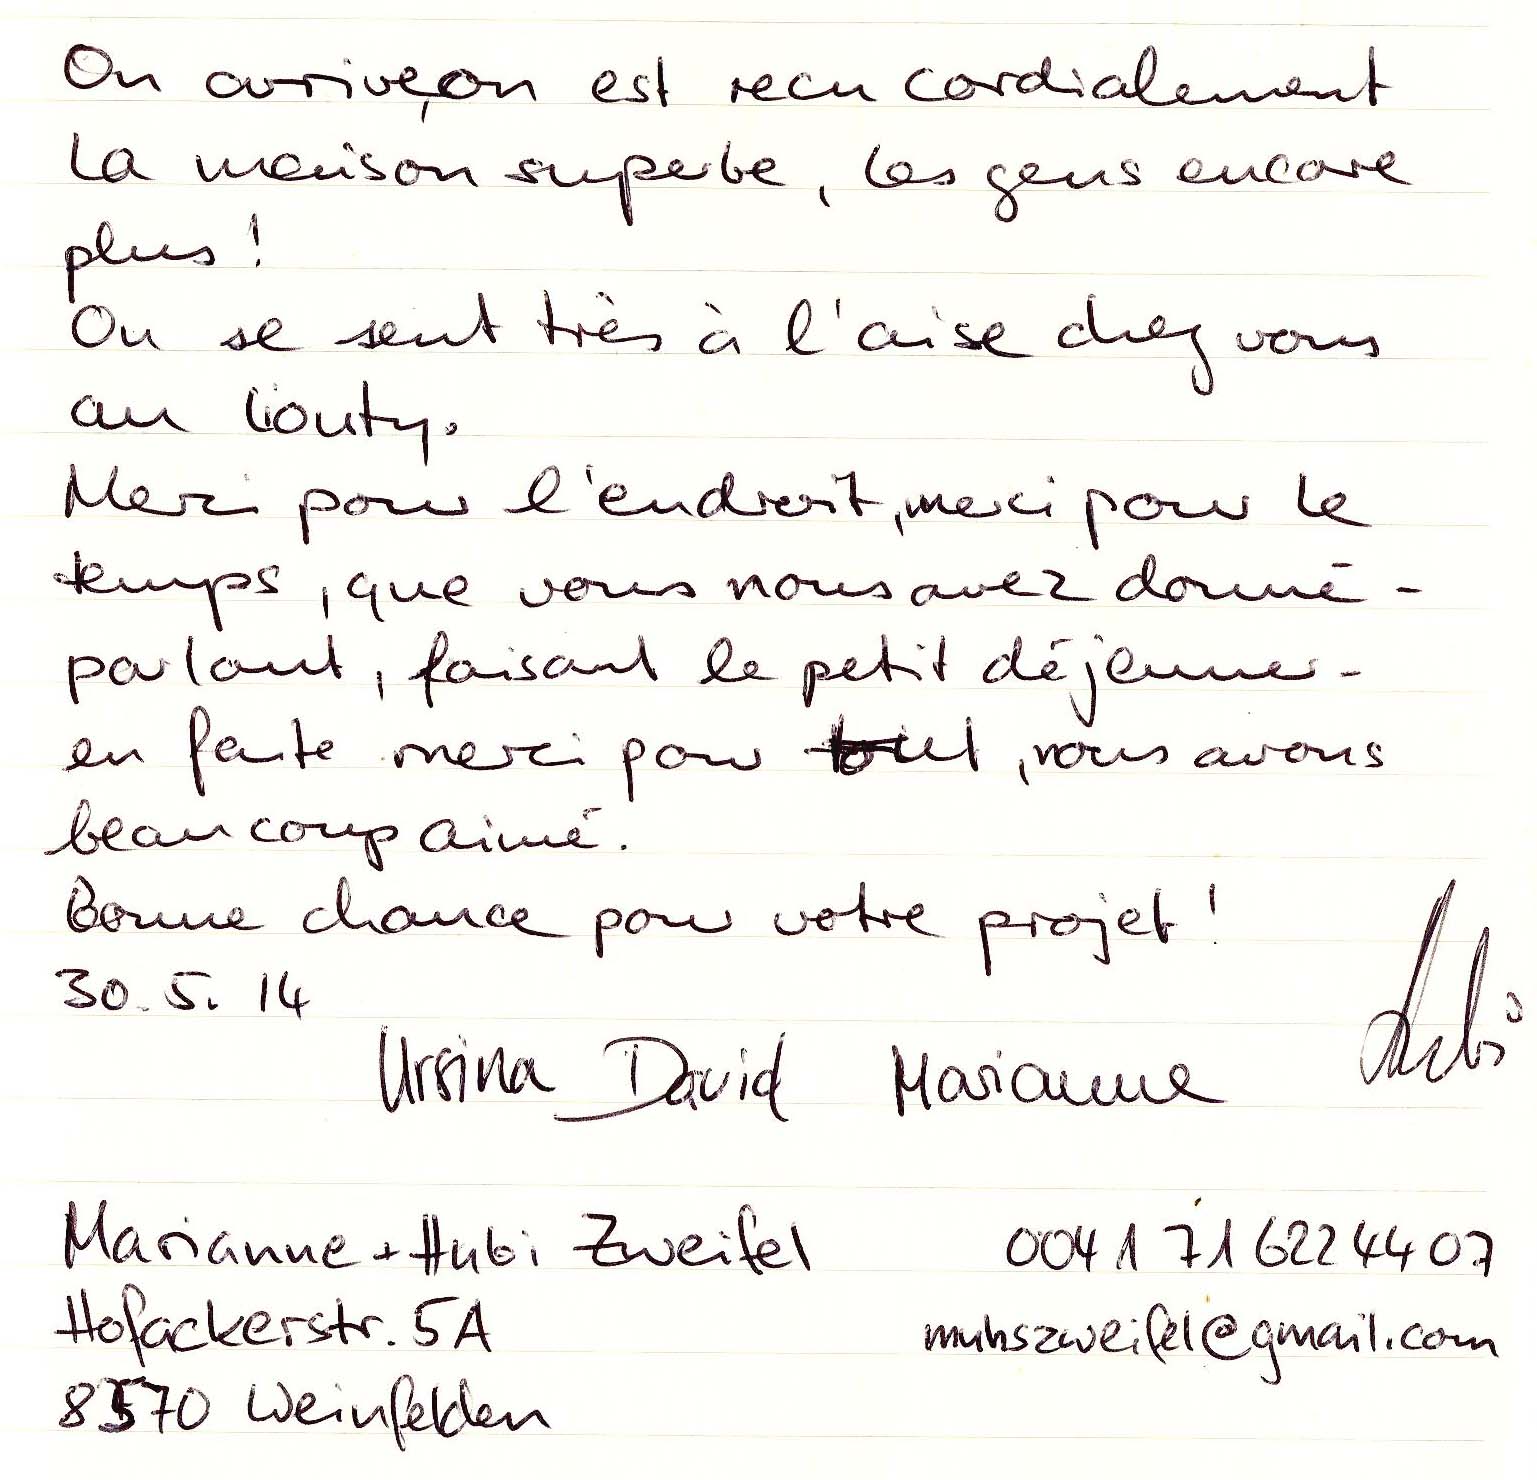 On arrive, on est recu cordialement
La maison superbe, les gens encore
plus!
On se sent très à l'aise chez vous
au Liouty.
Merci pour l'endroit, merci pour le
temps, que vous nous avez donné -
parlant, faisant le petit déjeuner -
en faite merci pour tout, nous avons
beaucoup aimé.
Bonne chance pour votre projet!
30.5.14
Ursina David Marianne Hubi
Marianne + Hubi Zweifel 0041 71 622 44 07
Hofackerstr. 5A muhszweifel@gmail.com
8570 Weinfelden